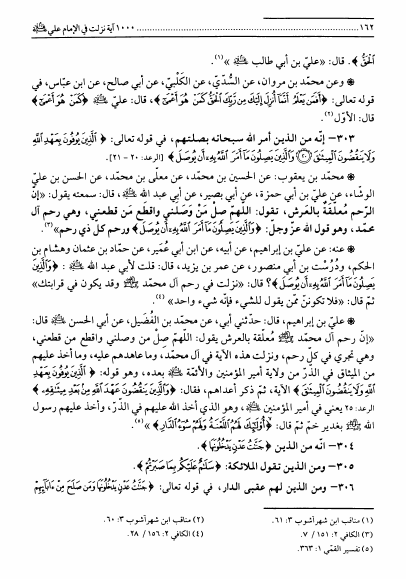 ١٦٢ .......... ١٠٠٠ آية نزلت في الإمام علي ﷺ
الْحَقُّ﴾. قال: «عليّ بن أبي طالب ﷺ»(١).
❋ وعن محمّد بن مروان، عن السُّدّي، عن الكلْبيّ، عن أبي صالح، عن ابن عبّاس، في
قوله تعالى: ﴿أَفَمَن يَعْلَمُ أَنَّمَا أُنزِلَ إِلَيْكَ مِن رَّبِّكَ الْحَقُّ كَمَنْ هُوَ أَعْمَىٰ﴾، قال: عليّ ﷺ ﴿كَمَنْ هُوَ أَعْمَىٰ﴾
قال: الأوّل(٢).
٣٠٣- إنّه من الذين أمر الله سبحانه بصلتهم، في قوله تعالى: ﴿الَّذِينَ يُوفُونَ بِعَهْدِ اللَّهِ
وَلَا يَنقُضُونَ الْمِيثَاقَ (٢٠) وَالَّذِينَ يَصِلُونَ مَا أَمَرَ اللَّهُ بِهِ أَن يُوصَلَ﴾ [الرعد: ٢٠ - ٢١].
❋ محمّد بن يعقوب: عن الحسين بن محمّد، عن معلّى بن محمّد، عن الحسن بن عليّ
الوشاء، عن عليّ بن أبي حمزة، عن أبي بصير، عن أبي عبد الله ﷺ، قال: سمعته يقول: «إن
الرّحم مُعلّقة بالعرش، تقول: اللّهمّ صِلْ مَنْ وَصَلني واقطَع من قطعني، وهي رحم آل
محمّد، وهو قول الله عزّ وجلّ: ﴿وَالَّذِينَ يَصِلُونَ مَا أَمَرَ اللَّهُ بِهِ أَن يُوصَلَ﴾ ورحم كل ذي رحم»(٣).
❋ عنه: عن عليّ بن إبراهيم، عن أبيه، عن ابن أبي عُمير، عن حمّاد بن عثمان وهشام بن
الحكم، ودُرُسْت بن أبي منصور، عن عمر بن يزيد، قال: قلت لأبي عبد الله ﷺ: ﴿وَالَّذِينَ
يَصِلُونَ مَا أَمَرَ اللَّهُ بِهِ أَن يُوصَلَ﴾؟ قال: «نزلت في رحم آل محمّد ﷺ وقد يكون في قرابتك»
ثمّ قال: «فلا تكوننّ ممّن يقول للشيء إنّه شيء واحد»(٤).
❋ عليّ بن إبراهيم، قال: حدّثني أبي، عن محمّد بن الفُضيل، عن أبي الحسن ﷺ قال:
«إن رحم آل محمّد ﷺ مُعلّقة بالعرش يقول: اللّهمّ صِلْ من وصلني واقطع من قطعني،
وهي تجري في كلّ رحم، ونزلت هذه الآية في آل محمّد، وما عاهدهم عليه، وما أخذ عليهم
من الميثاق في الذّرّ من ولاية أمير المؤمنين والأئمّة ﷺ بعده، وهو قوله: ﴿الَّذِينَ يُوفُونَ بِعَهْدِ
اللَّهِ وَلَا يَنقُضُونَ الْمِيثَاقَ﴾ الآية، ثمّ ذكر أعداءهم، فقال: ﴿وَالَّذِينَ يَنقُضُونَ عَهْدَ اللَّهِ مِن بَعْدِ مِيثَاقِهِ﴾
الرعد: ٢٥ يعني في أمير المؤمنين ﷺ، وهو الذي أخذ الله عليهم في الذّرّ، وأخذ عليهم رسول
الله ﷺ بغدير خمّ ثمّ قال: ﴿أُولَٰئِكَ لَهُمُ اللَّعْنَةُ وَلَهُمْ سُوءُ الدَّارِ﴾»(٥).
٣٠٤- انّه من الذين ﴿جَنَّاتُ عَدْنٍ يَدْخُلُونَهَا﴾.
٣٠٥- ومن الذين تقول الملائكة: ﴿سَلَامٌ عَلَيْكُم بِمَا صَبَرْتُمْ﴾.
٣٠٦- ومن الذين لهم عقبى الدار، في قوله تعالى: ﴿جَنَّاتُ عَدْنٍ يَدْخُلُونَهَا وَمَن صَلَحَ مِنْ آبَائِهِمْ
(١) مناقب ابن شهرآشوب ٣: ٦١.
(٢) مناقب ابن شهرآشوب ٣: ٦٠.
(٣) الكافي ٢: ١٥١ / ٧.
(٤) الكافي ٢: ١٥٦ / ٢٨.
(٥) تفسير القمّي ١: ٣٦٣.